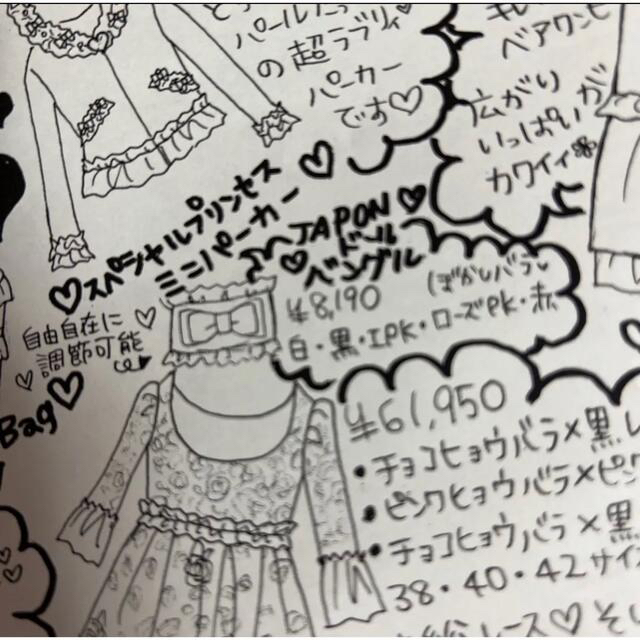 パール
の超ラブリィ
パーカー
です♡
ベアワンピ
広がり
いっぱいが
カワイイ
♡スペシャルプリンセス
ミニパーカー♡
JAPAN♡
ドール
♡バングル
¥8,190
ぼかしバラ
白・黒・IPK・ローズPK・赤
自由自在に♡
調節可能
♡
Bag♡
¥61,950
・チョコヒョウバラ×黒レ
・ピンクヒョウバラ×ピンク
・チョコヒョウバラ×黒
38・40・42サイズ
レース♡